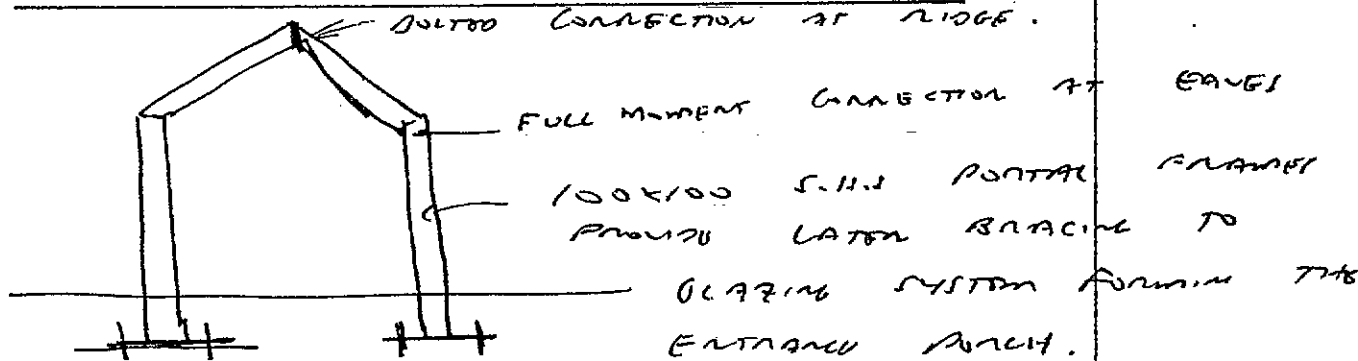 BOLTED CONNECTION AT RIDGE.
FULL MOMENT CONNECTION AT EAVES
100x100 S.H.S PORTAL FRAMES
PROVIDE LATER BRACING TO
GLAZING SYSTEM FORMING THE
ENTRANCE PORCH.